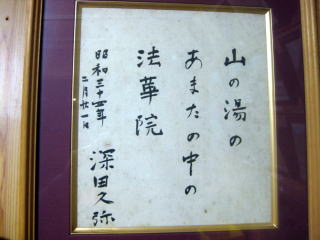 山の湯の
あまたの中の
法華院
昭和三十四年
二月廿一日
深田久弥